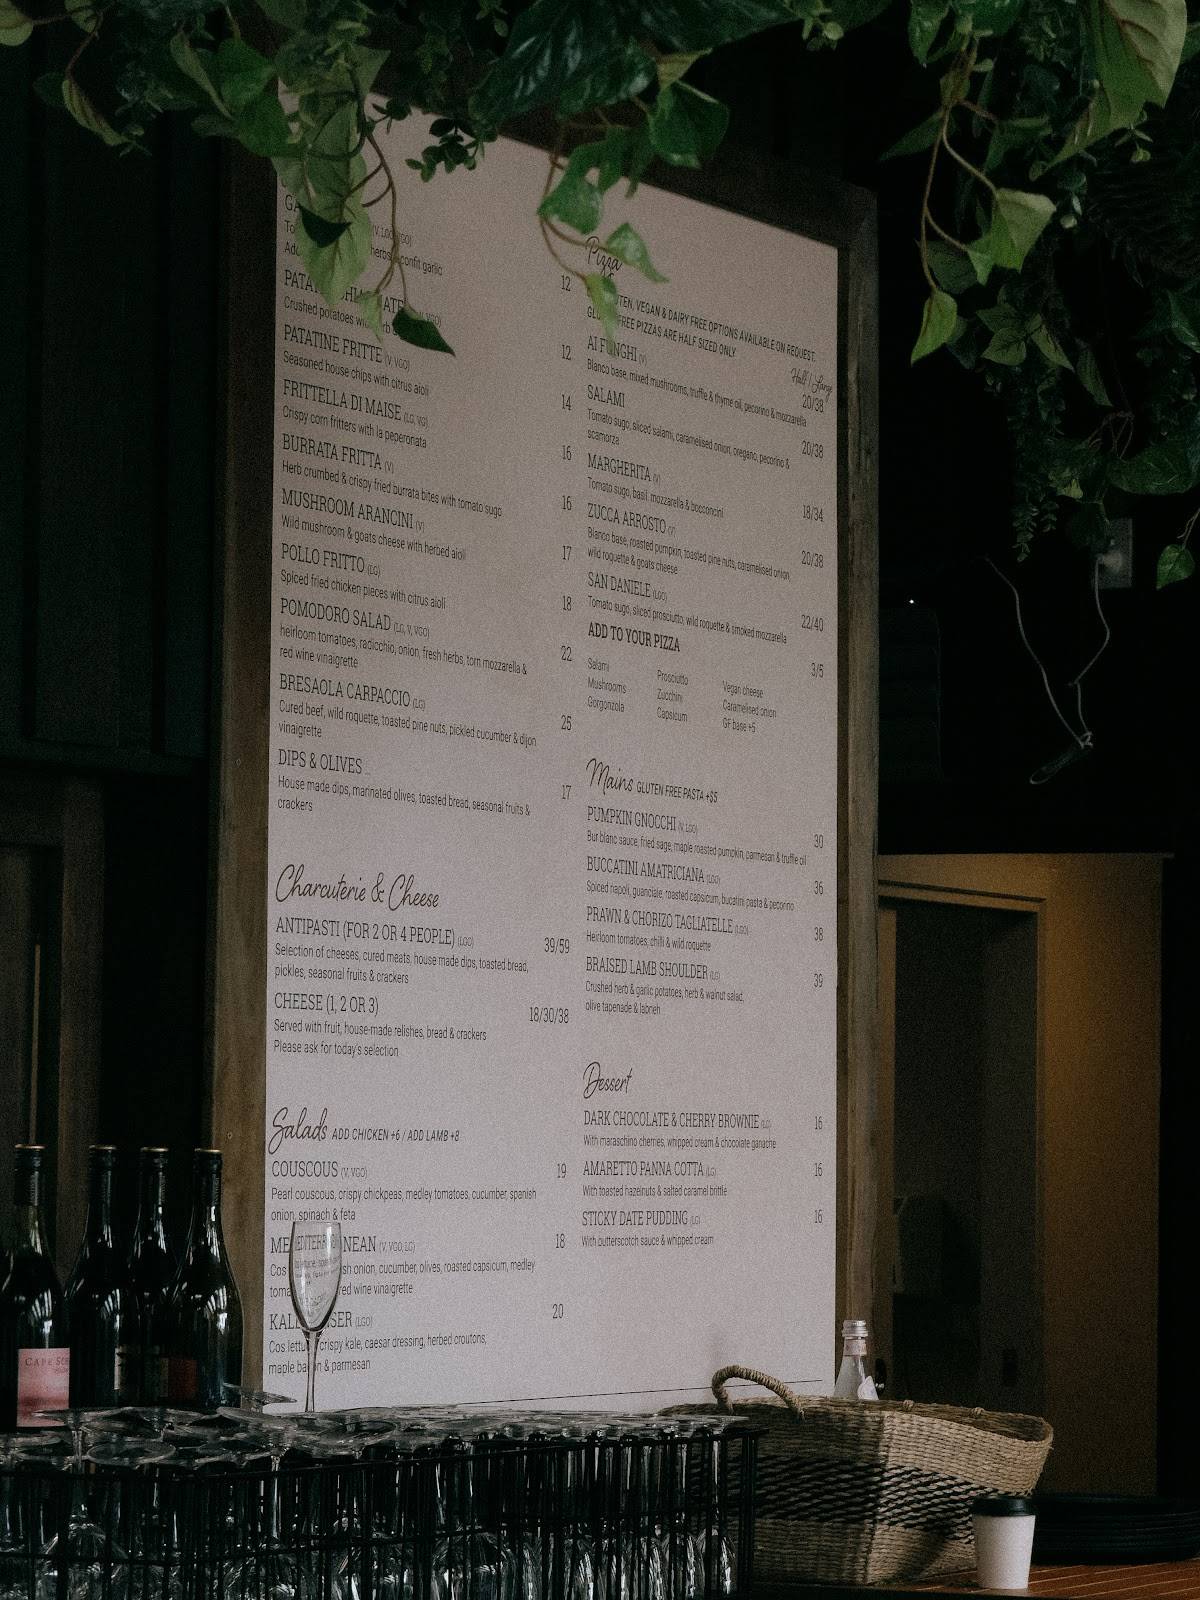 (V, LGO, VGO)
herbs & confit garlic
12
Crushed potatoes
PATATINE FRITTE (V, VGO)
12
Seasoned house chips with citrus aioli
FRITTELLA DI MAISE (LG, VG)
14
Crispy corn fritters with la peperonata
BURRATA FRITTA (V)
16
Herb crumbed & crispy fried burrata bites with tomato sugo
MUSHROOM ARANCINI (V)
16
Wild mushroom & goats cheese with herbed aioli
POLLO FRITTO (LG)
17
Spiced fried chicken pieces with citrus aioli
POMODORO SALAD (LG, V, VGO)
18
heirloom tomatoes, radicchio, onion, fresh herbs, torn mozzarella &
red wine vinaigrette
22
BRESAOLA CARPACCIO (LG)
25
Cured beef, wild roquette, toasted pine nuts, pickled cucumber & dijon
vinaigrette
DIPS & OLIVES
17
House made dips, marinated olives, toasted bread, seasonal fruits &
crackers
Charcuterie & Cheese
ANTIPASTI (FOR 2 OR 4 PEOPLE) (LGO) 39/59
Selection of cheeses, cured meats, house made dips, toasted bread,
pickles, seasonal fruits & crackers
CHEESE (1, 2 OR 3) 18/30/38
Served with fruit, house-made relishes, bread & crackers
Please ask for today's selection
Salads ADD CHICKEN +6 / ADD LAMB +8
COUSCOUS (V, VGO) 19
Pearl couscous, crispy chickpeas, medley tomatoes, cucumber, spanish
onion, spinach & feta
MEDITERRANEAN (V, VGO, LG) 18
Cos onion, cucumber, olives, roasted capsicum, medley
red wine vinaigrette
(LGO) 20
Cos lettuce, crispy kale, caesar dressing, herbed croutons,
maple bacon & parmesan
Pizza
VEGAN & DAIRY FREE OPTIONS AVAILABLE ON REQUEST.
FREE PIZZAS ARE HALF SIZED ONLY
Half / Large
AI FUNGHI (V) 20/38
Bianco base, mixed mushrooms, truffle & thyme oil, pecorino & mozzarella
SALAMI 20/38
Tomato sugo, sliced salami, caramelised onion, oregano, pecorino &
scamorza
MARGHERITA (V) 18/34
Tomato sugo, basil, mozzarella & bocconcini
ZUCCA ARROSTO (V) 20/38
Bianco base, roasted pumpkin, toasted pine nuts, caramelised onion,
wild roquette & goats cheese
SAN DANIELE (LGO) 22/40
Tomato sugo, sliced prosciutto, wild roquette & smoked mozzarella
ADD TO YOUR PIZZA 3/5
Salami Prosciutto Vegan cheese
Mushrooms Zucchini Caramelised onion
Gorgonzola Capsicum GF base +5
Mains GLUTEN FREE PASTA +$5
PUMPKIN GNOCCHI (V, LGO) 30
Bur blanc sauce, fried sage, maple roasted pumpkin, parmesan & truffle oil
BUCCATINI AMATRICIANA (LGO) 36
Spiced napoli, guanciale, roasted capsicum, bucatini pasta & pecorino
PRAWN & CHORIZO TAGLIATELLE (LGO) 38
Heirloom tomatoes, chilli & wild roquette
BRAISED LAMB SHOULDER (LG) 39
Crushed herb & garlic potatoes, herb & walnut salad,
olive tapenade & labneh
Dessert
DARK CHOCOLATE & CHERRY BROWNIE (LG) 16
With maraschino cherries, whipped cream & chocolate ganache
AMARETTO PANNA COTTA (LG) 16
With toasted hazelnuts & salted caramel brittle
STICKY DATE PUDDING (LG) 16
With butterscotch sauce & whipped cream
CAPE